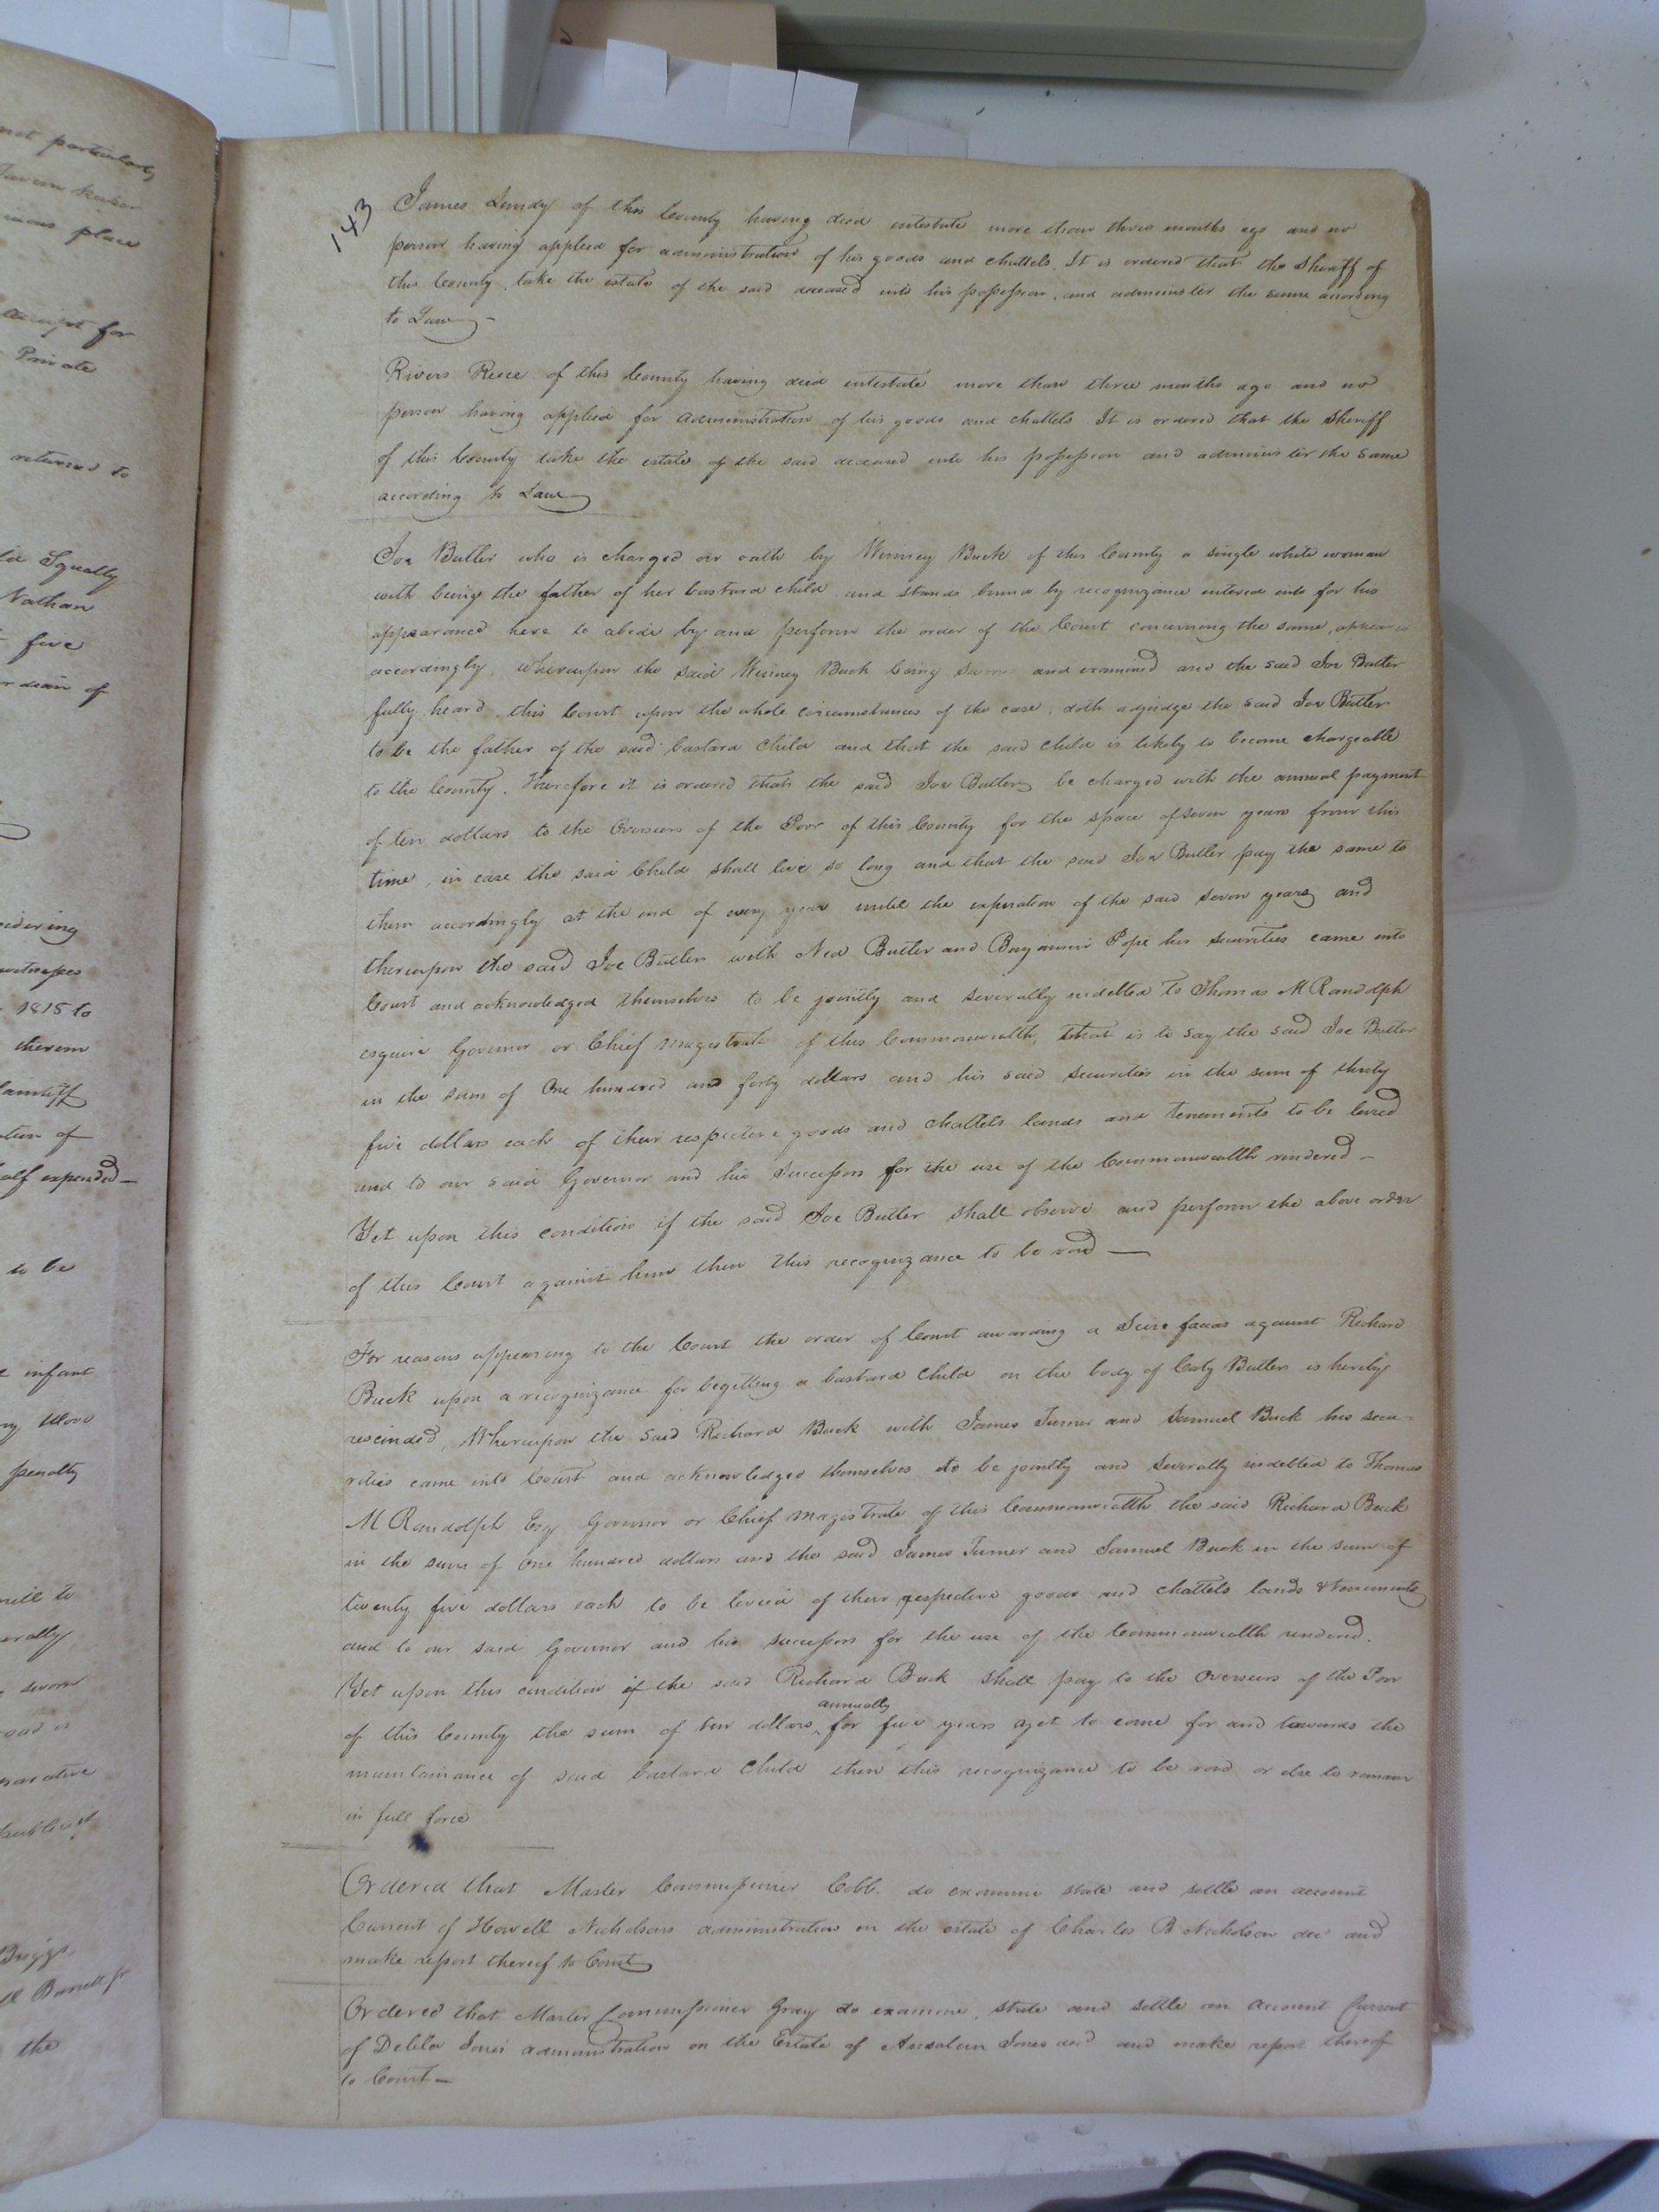 not particularly
Tavern keeper
place
for
Private
returned to
Equally
Nathan
five
of
1815 to
therein
plaintiff
of
expended —
to be
infant
penalty
will to
sworn
Briggs
the
143
James Lundy of this County having died intestate more than three months ago and no
person having applied for administration of his goods and chattels It is ordered that the Sheriff of
this County take the estate of the said deceased into his possession, and administer the same according
to Law —
Rivers Reese of this County having died intestate more than three months ago and no
person having applied for administration of his goods and chattels It is ordered that the Sheriff
of this County take the estate of the said deceased into his possession and administer the same
according to Law
Joe Butler who is charged on oath by Winney Buck of this County a single white woman
with being the father of her bastard child and stands bound by recognizance entered into for his
appearance here to abide by and perform the order of the Court concerning the same, appeared
accordingly, whereupon the said Winney Buck being sworn and examined and the said Joe Butler
fully heard, this Court upon the whole circumstances of the case, doth adjudge the said Joe Butler
to be the father of the said bastard child and that the said child is likely to become chargeable
to the County. Therefore it is ordered that the said Joe Butler be charged with the annual payment
of ten dollars to the Overseers of the Poor of this County for the space of seven years from this
time, in case the said Child shall live so long and that the said Joe Butler pay the same to
them accordingly at the end of every year until the expiration of the said seven years and
thereupon the said Joe Butler with Ned Butler and Benjamin Pope his securities came into
Court and acknowledged themselves to be jointly and severally indebted to Thomas M Randolph
esquire Governor or Chief magistrate of this Commonwealth, that is to say the said Joe Butler
in the sum of One hundred and forty dollars and his said securities in the sum of thirty
five dollars each of their respective goods and chattels lands and tenements to be levied
and to our said Governor and his successors for the use of the Commonwealth rendered —
Yet upon this condition if the said Joe Butler shall observe and perform the above order
of this Court against him then this recognizance to be void —
For reasons appearing to the Court the order of Court awarding a Scire facias against Richard
Buck upon a recognizance for begetting a bastard child on the body of Caty Butler is hereby
rescinded, Whereupon the said Richard Buck with James Turner and Samuel Buck his secu-
rities came into Court and acknowledged themselves to be jointly and severally indebted to Thomas
M Randolph Esq Governor or Chief Magistrate of this Commonwealth the said Richard Buck
in the sum of One hundred dollars and the said James Turner and Samuel Buck in the sum of
twenty five dollars each to be levied of their respective goods and chattels lands & tenements
and to our said Governor and his successors for the use of the Commonwealth rendered.
Yet upon this condition if the said Richard Buck shall pay to the Overseers of the Poor
of this County the sum of ten dollars annually for five years yet to come for and towards the
maintainance of said bastard child then this recognizance to be void or else to remain
in full force
Ordered that Master Commissioner Cobb. do examine state and settle an account
Current of Howell Nicholsons administration on the estate of Charles B Nicholson decd and
make report thereof to Court
Ordered that Master Commissioner Gray do examine, state and settle an account Current
of Delila Jones administration on the Estate of Ansalem Jones decd and make report thereof
to Court —